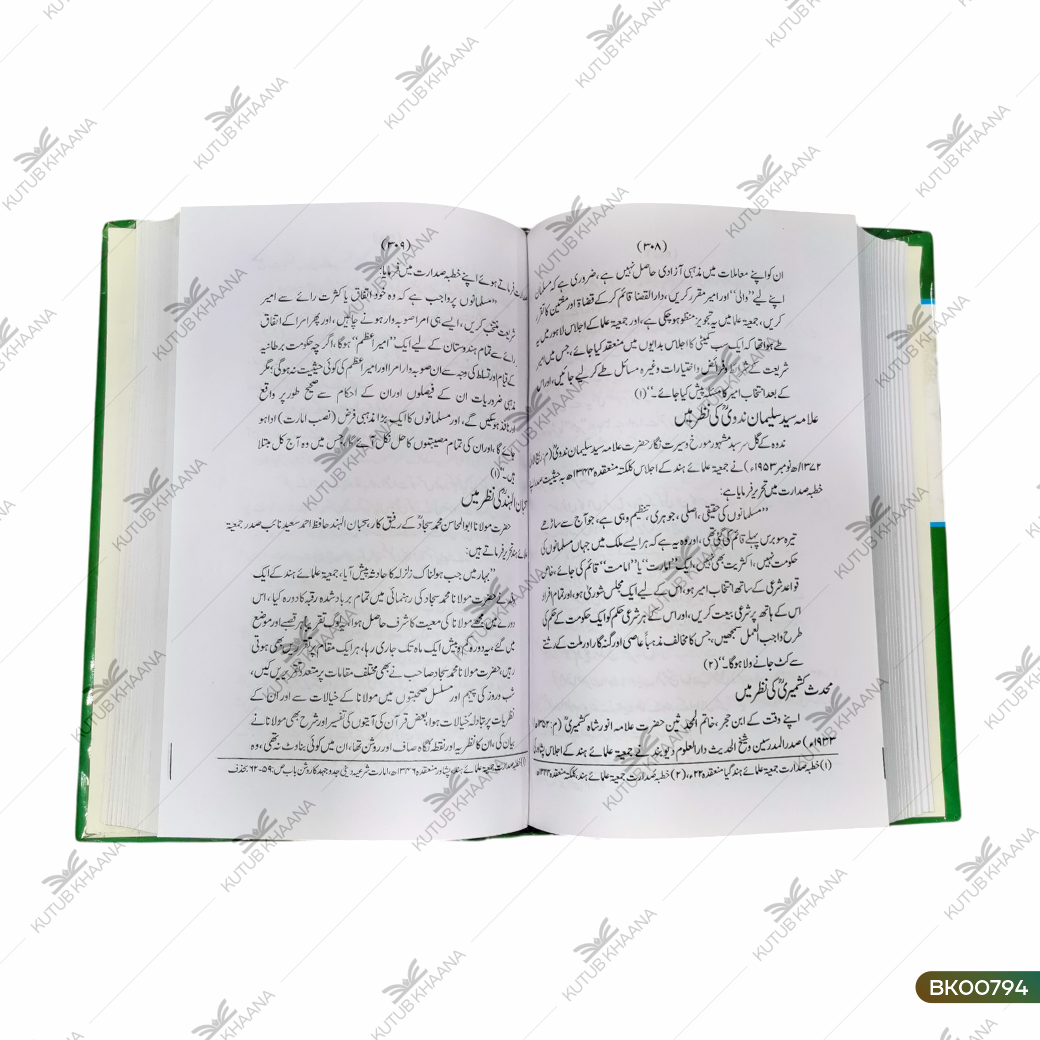 (۳۰۸)
ان کو اپنے معاملات میں مذہبی آزادی حاصل نہیں ہے، ضروری ہے کہ مسلمان
اپنے لیے "والی" اور امیر مقرر کریں، دارالقضا قائم کرکے قضاۃ اور مفتیین کا تقرر
کریں، جمعیۃ علما میں یہ تجویز منظور ہوچکی ہے، اور جمعیۃ علما کے اجلاس لاہور میں یہ
طے ہوا تھا کہ ایک سب کمیٹی کا اجلاس بدایوں میں منعقد کیا جائے، جس میں امیر
شریعت کے شرائط و فرائض و اختیارات وغیرہ مسائل طے کرلیے جائیں، اور اس
کے بعد انتخاب امیر کا مسئلہ پیش کیا جائے۔" (۱)
علامہ سید سلیمان ندویؒ کی نظر میں
ندوہ کے گل سرسبد مشہور مورخ و سیرت نگار حضرت علامہ سید سلیمان ندویؒ (م:
۱۳۷۲ھ/نومبر ۱۹۵۳ء) نے جمعیۃ علمائے ہند کے اجلاس کلکتہ منعقدہ ۱۳۴۴ھ بہ حیثیت صدر اپنے
خطبہ صدارت میں تحریر فرمایا ہے:
"مسلمانوں کی حقیقی، اصلی، جوہری، تنظیم وہی ہے، جو آج سے ساڑھے
تیرہ سو برس پہلے قائم کی گئی تھی، اور وہ یہ ہے کہ ہر ایسے ملک میں جہاں مسلمانوں کی
حکومت نہیں، اکثریت بھی نہیں، ایک "امارت" یا "امامت" قائم کی جائے، خاص
قواعد شرعی کے ساتھ انتخاب امیر ہو، اس کے لیے ایک مجلس شوریٰ ہو، اور تمام افراد
اس کے ہاتھ پر شرعی بیعت کریں، اور اس کے ہر شرعی حکم کو ایک حکومت کے حکم کی
طرح واجب العمل سمجھیں، جس کا مخالف مذہباً عاصی اور گنہگار اور ملت کے رشتے
سے کٹ جانے والا ہوگا۔" (۲)
محدث کشمیریؒ کی نظر میں
اپنے وقت کے ابن حجر، خاتم المحدثین حضرت علامہ انور شاہ کشمیریؒ (م: ۱۳۵۲ھ/
۱۹۳۳ء) صدر المدرسین و شیخ الحدیث دارالعلوم دیوبند نے جمعیۃ علمائے ہند کے اجلاس پشاور
(۱) خطبہ صدارت جمعیۃ علمائے ہند گیا منعقدہ ۲۲ء، (۲) خطبہ صدارت جمعیۃ علمائے ہند، کلکتہ منعقدہ
(۳۰۹)
صدارت فرماتے ہوئے اپنے خطبہ صدارت میں فرمایا:
"مسلمانوں پر واجب ہے کہ وہ خود اتفاق یا کثرت رائے سے امیر
شریعت منتخب کریں، ایسے ہی امرا صوبہ وار ہونے چاہئیں، اور پھر امرا کے اتفاق
رائے سے تمام ہندوستان کے لیے ایک "امیر اعظم" ہوگا، اگرچہ حکومت برطانیہ
کے قیام اور تسلط کی وجہ سے ان صوبہ وار امرا اور امیر اعظم کی کوئی حیثیت نہ ہوگی؛ مگر
مذہبی ضروریات ان کے فیصلوں اور ان کے احکام سے صحیح طور پر واقع
اور نافذ ہوسکیں گے، اور مسلمانوں کا ایک بڑا مذہبی فرض (نصب امارت) ادا ہو
جائے گا، اور ان کی تمام مصیبتوں کا حل نکل آئے گا، جس میں وہ آج کل مبتلا
ہیں۔" (۱)
سحبان الہندؒ کی نظر میں
حضرت مولانا ابوالمحاسن محمد سجادؒ کے رفیق کار، سحبان الہند حافظ احمد سعید نائب صدر جمعیۃ
علمائے ہند تحریر فرماتے ہیں:
"بہار میں جب ہولناک زلزلہ کا حادثہ پیش آیا، جمعیۃ علمائے ہند کے ایک
وفد نے حضرت مولانا محمد سجاد کی رہنمائی میں تمام برباد شدہ رقبہ کا دورہ کیا، اس
دورے میں مجھے مولانا کی معیت کا شرف حاصل ہوا، ہم لوگ تقریباً ہر قصبے اور موضع
میں گئے، یہ دورہ کم و بیش ایک ماہ تک جاری رہا، ہر ایک مقام پر تقریریں بھی ہوتی
رہیں، حضرت مولانا محمد سجاد صاحب نے بھی مختلف مقامات پر متعدد تقریریں کیں،
شب و روز کی پیہم اور مسلسل صحبتوں میں مولانا کے خیالات سے اور ان کے
نظریات پر تبادلہ خیالات ہوا، بعض قرآن کی آیتوں کی تفسیر اور شرح بھی مولانا نے
بیان کی، ان کا نظریہ اور نقطہ نگاہ صاف اور روشن تھا، ان میں کوئی بناوٹ نہ تھی، وہ
(۱) خطبہ صدارت جمعیۃ علمائے ہند، پشاور منعقدہ ۱۳۴۶ھ، امارت شرعیہ دینی جدوجہد کا روشن باب ص: ۵۹-۶۲ بحذف
KUTUB KHAANA
BK00794